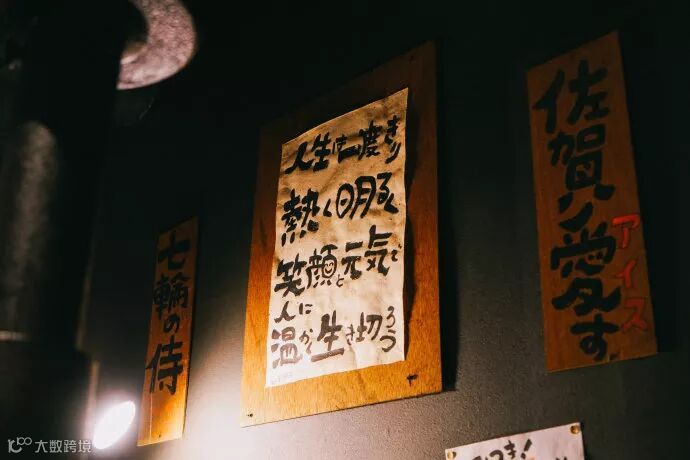 七輪の侍
人生は一度きり
熱く明るく
笑顔と元気で
人に
温かく生き切ろう
佐賀ハ愛す
アイス
大数跨境